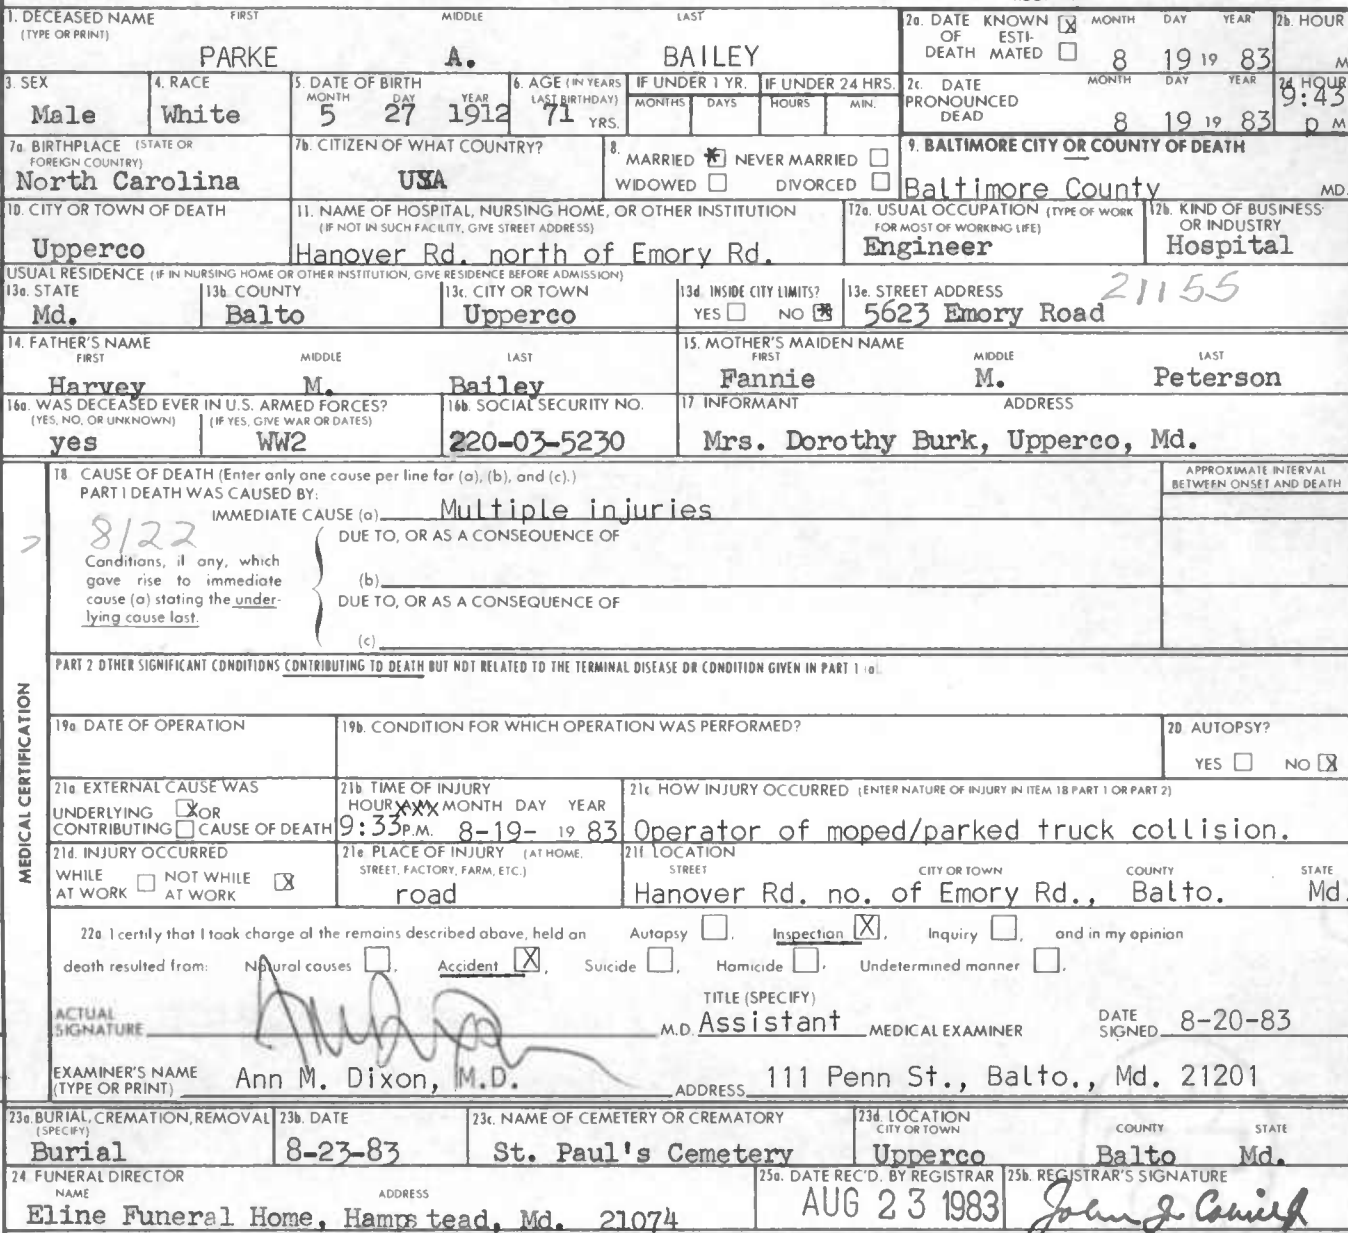 1. DECEASED NAME FIRST MIDDLE LAST
(TYPE OR PRINT)
PARKE A. BAILEY
2a. DATE KNOWN X MONTH DAY YEAR
OF ESTI-
DEATH MATED 8 19 19 83
2b. HOUR
M
3. SEX
Male
4. RACE
White
5. DATE OF BIRTH
MONTH DAY YEAR
5 27 1912
6. AGE (IN YEARS
LAST BIRTHDAY)
71 YRS.
IF UNDER 1 YR.
MONTHS DAYS
IF UNDER 24 HRS.
HOURS MIN.
2c. DATE MONTH DAY YEAR
PRONOUNCED
DEAD 8 19 19 83
2d HOUR
9:43
p M
7a BIRTHPLACE (STATE OR
FOREIGN COUNTRY)
North Carolina
7b. CITIZEN OF WHAT COUNTRY?
USA
8. MARRIED X NEVER MARRIED
WIDOWED DIVORCED
9. BALTIMORE CITY OR COUNTY OF DEATH
Baltimore County MD.
10. CITY OR TOWN OF DEATH
Upperco
11. NAME OF HOSPITAL, NURSING HOME, OR OTHER INSTITUTION
(IF NOT IN SUCH FACILITY, GIVE STREET ADDRESS)
Hanover Rd. north of Emory Rd.
12a. USUAL OCCUPATION (TYPE OF WORK
FOR MOST OF WORKING LIFE)
Engineer
12b. KIND OF BUSINESS
OR INDUSTRY
Hospital
USUAL RESIDENCE (IF IN NURSING HOME OR OTHER INSTITUTION, GIVE RESIDENCE BEFORE ADMISSION)
13a. STATE
Md.
13b. COUNTY
Balto
13c. CITY OR TOWN
Upperco
13d. INSIDE CITY LIMITS?
YES NO X
13e. STREET ADDRESS 21155
5623 Emory Road
14. FATHER'S NAME
FIRST MIDDLE LAST
Harvey M. Bailey
15. MOTHER'S MAIDEN NAME
FIRST MIDDLE LAST
Fannie M. Peterson
16a. WAS DECEASED EVER IN U.S. ARMED FORCES?
(YES, NO, OR UNKNOWN) (IF YES, GIVE WAR OR DATES)
yes WW2
16b. SOCIAL SECURITY NO.
220-03-5230
17 INFORMANT ADDRESS
Mrs. Dorothy Burk, Upperco, Md.
MEDICAL CERTIFICATION
18 CAUSE OF DEATH (Enter only one cause per line for (a), (b), and (c).)
PART I DEATH WAS CAUSED BY:
IMMEDIATE CAUSE (a) Multiple injuries
APPROXIMATE INTERVAL
BETWEEN ONSET AND DEATH
8/22
DUE TO, OR AS A CONSEQUENCE OF
Conditions, if any, which
gave rise to immediate
cause (a) stating the under-
lying cause last.
(b)
DUE TO, OR AS A CONSEQUENCE OF
(c)
PART 2 OTHER SIGNIFICANT CONDITIONS CONTRIBUTING TO DEATH BUT NOT RELATED TO THE TERMINAL DISEASE OR CONDITION GIVEN IN PART 1 (a).
19a DATE OF OPERATION
19b. CONDITION FOR WHICH OPERATION WAS PERFORMED?
20 AUTOPSY?
YES NO X
21a EXTERNAL CAUSE WAS
UNDERLYING X OR
CONTRIBUTING CAUSE OF DEATH
21b TIME OF INJURY
HOUR XXX MONTH DAY YEAR
9:33 P.M. 8-19- 19 83
21c HOW INJURY OCCURRED (ENTER NATURE OF INJURY IN ITEM 18 PART 1 OR PART 2)
Operator of moped/parked truck collision.
21d. INJURY OCCURRED
WHILE NOT WHILE
AT WORK AT WORK X
21e PLACE OF INJURY (AT HOME,
STREET, FACTORY, FARM, ETC.)
road
21f. LOCATION
STREET CITY OR TOWN COUNTY STATE
Hanover Rd. no. of Emory Rd., Balto. Md.
22a I certify that I took charge of the remains described above, held an Autopsy , Inspection X , Inquiry , and in my opinion
death resulted from: Natural causes , Accident X , Suicide , Homicide , Undetermined manner .
ACTUAL
SIGNATURE M.D.
TITLE (SPECIFY)
Assistant MEDICAL EXAMINER
DATE
SIGNED 8-20-83
EXAMINER'S NAME
(TYPE OR PRINT) Ann M. Dixon, M.D. ADDRESS 111 Penn St., Balto., Md. 21201
23a. BURIAL, CREMATION, REMOVAL
(SPECIFY)
Burial
23b. DATE
8-23-83
23c. NAME OF CEMETERY OR CREMATORY
St. Paul's Cemetery
23d LOCATION
CITY OR TOWN COUNTY STATE
Upperco Balto Md.
24 FUNERAL DIRECTOR
NAME ADDRESS
Eline Funeral Home, Hampstead, Md. 21074
25a. DATE REC'D. BY REGISTRAR
AUG 23 1983
25b. REGISTRAR'S SIGNATURE
John J.